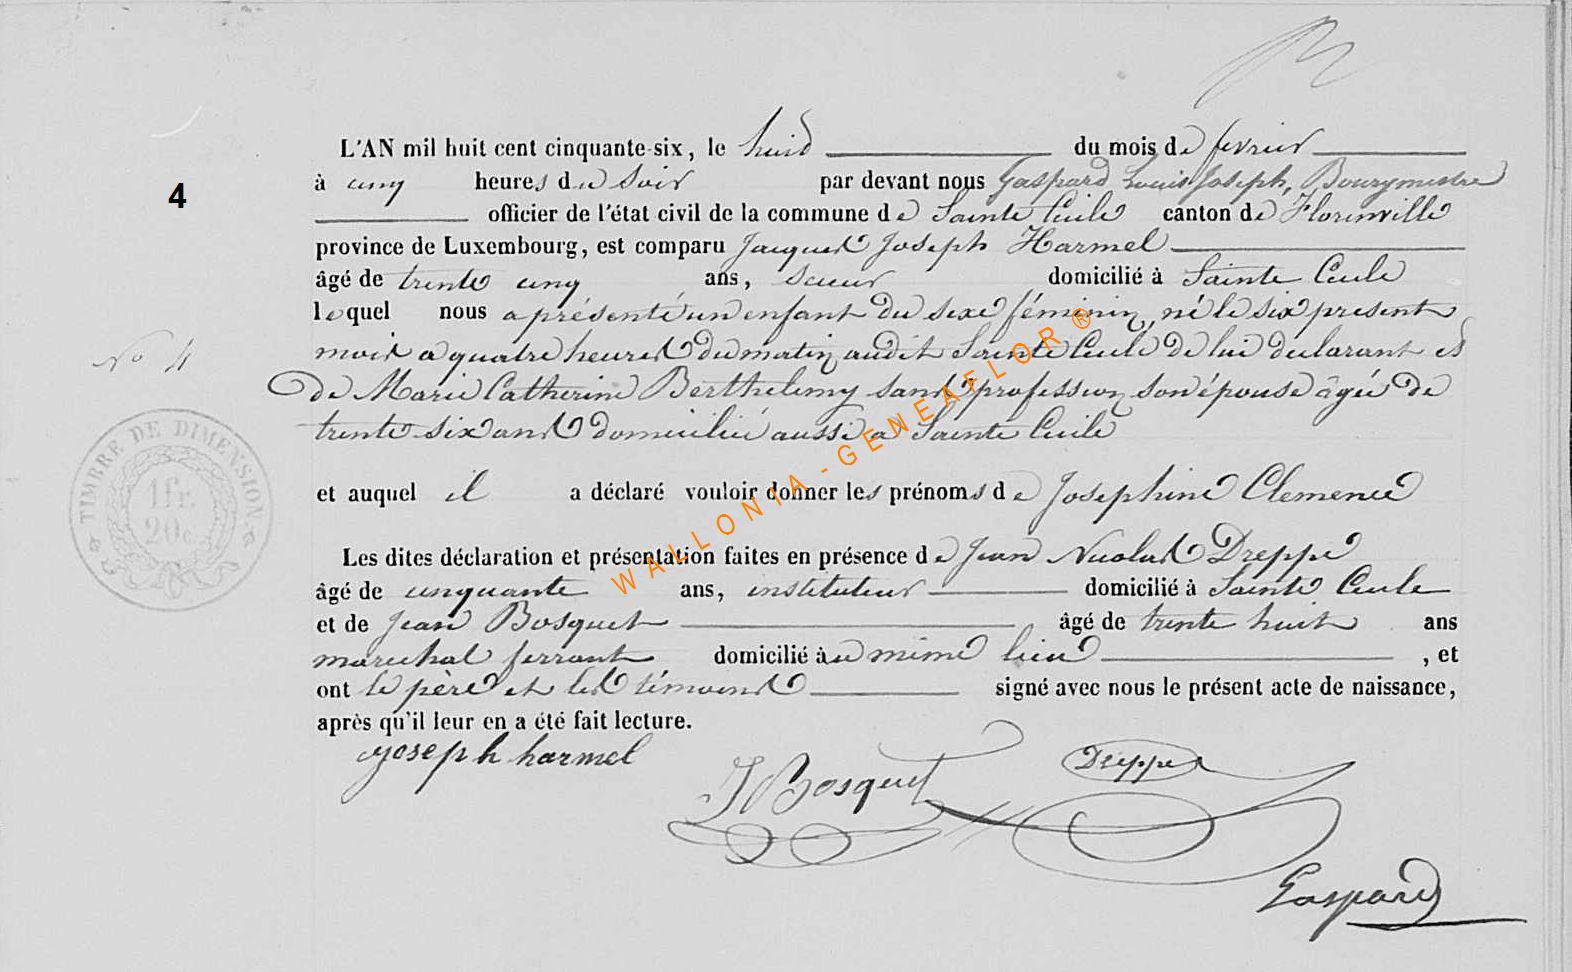 L'AN mil huit cent cinquante-six, le huit du mois de fevrier
à cinq heures du soir par devant nous Gaspard Louis Joseph, Bourgmestre
officier de l'état civil de la commune de Sainte Cécile canton de Florenville
province de Luxembourg, est comparu Jacques Joseph Harmel
âgé de trente cinq ans, scieur domicilié à Sainte Cecile
lequel nous a présenté un enfant du sexe féminin, né le six present
mois a quatre heures du matin audit Sainte Cecile de lui declarant et
N° 4
de Marie Catherine Berthelemy sans profession son épouse âgée de
trente six ans domiciliée aussi a Sainte Cecile
4
TIMBRE DE DIMENSION
1 fr.
20 c.
et auquel il a déclaré vouloir donner les prénoms de Josephine Clemence
Les dites déclaration et présentation faites en présence de Jean Nicolas Dreppe
âgé de cinquante ans, instituteur domicilié à Sainte Cecile
et de Jean Bosquet âgé de trente huit ans
marechal ferrant domicilié au même lieu , et
ont le père et les témoins signé avec nous le présent acte de naissance,
après qu'il leur en a été fait lecture.
joseph harmel
J Bosquet
Dreppe
Gaspard
WALLONIA-GENEAFLOR®